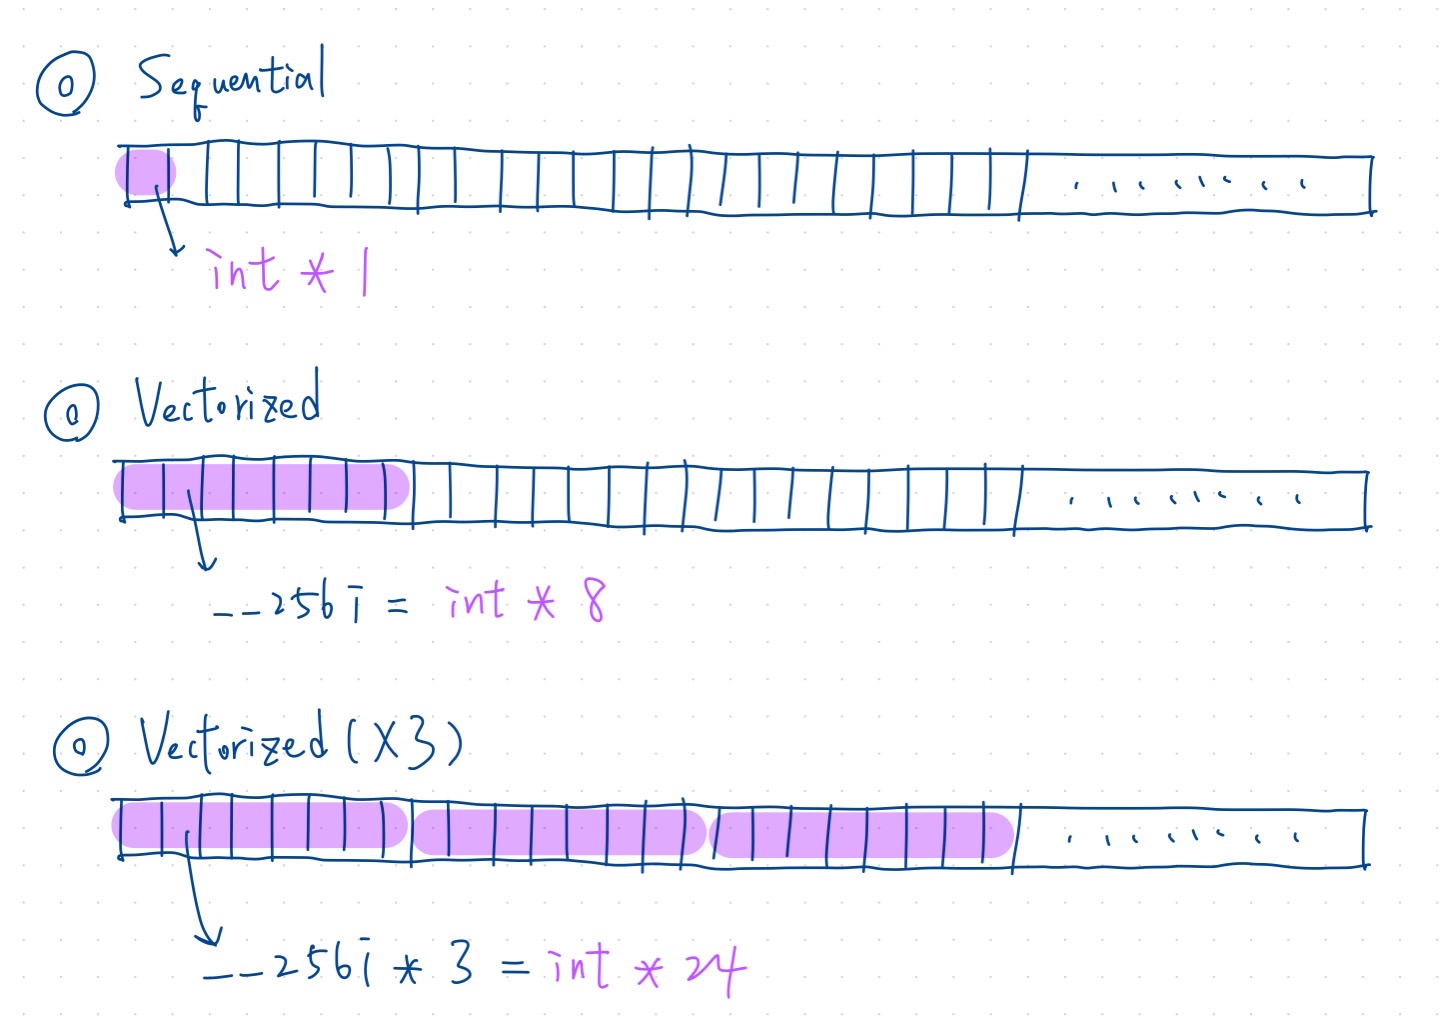 Sequential
int * 1
Vectorized
__256i = int * 8
Vectorized (X3)
__256i * 3 = int * 24